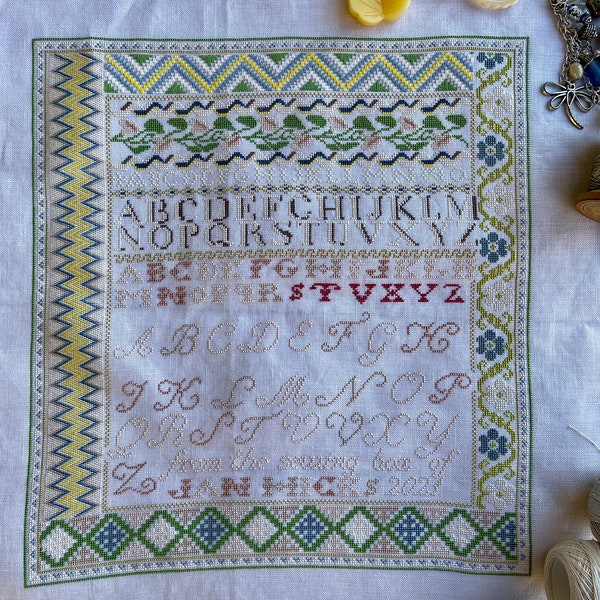 ABCDEFGHIJKLM
NOPQRSTUVXYZ
ABCDEFGHIJKLM
MNOPQRSTVXYZ
ABCDEFGH
IKLMNOP
QRSTUVXY
from the sewing box of
Z JAN HICKS 2021